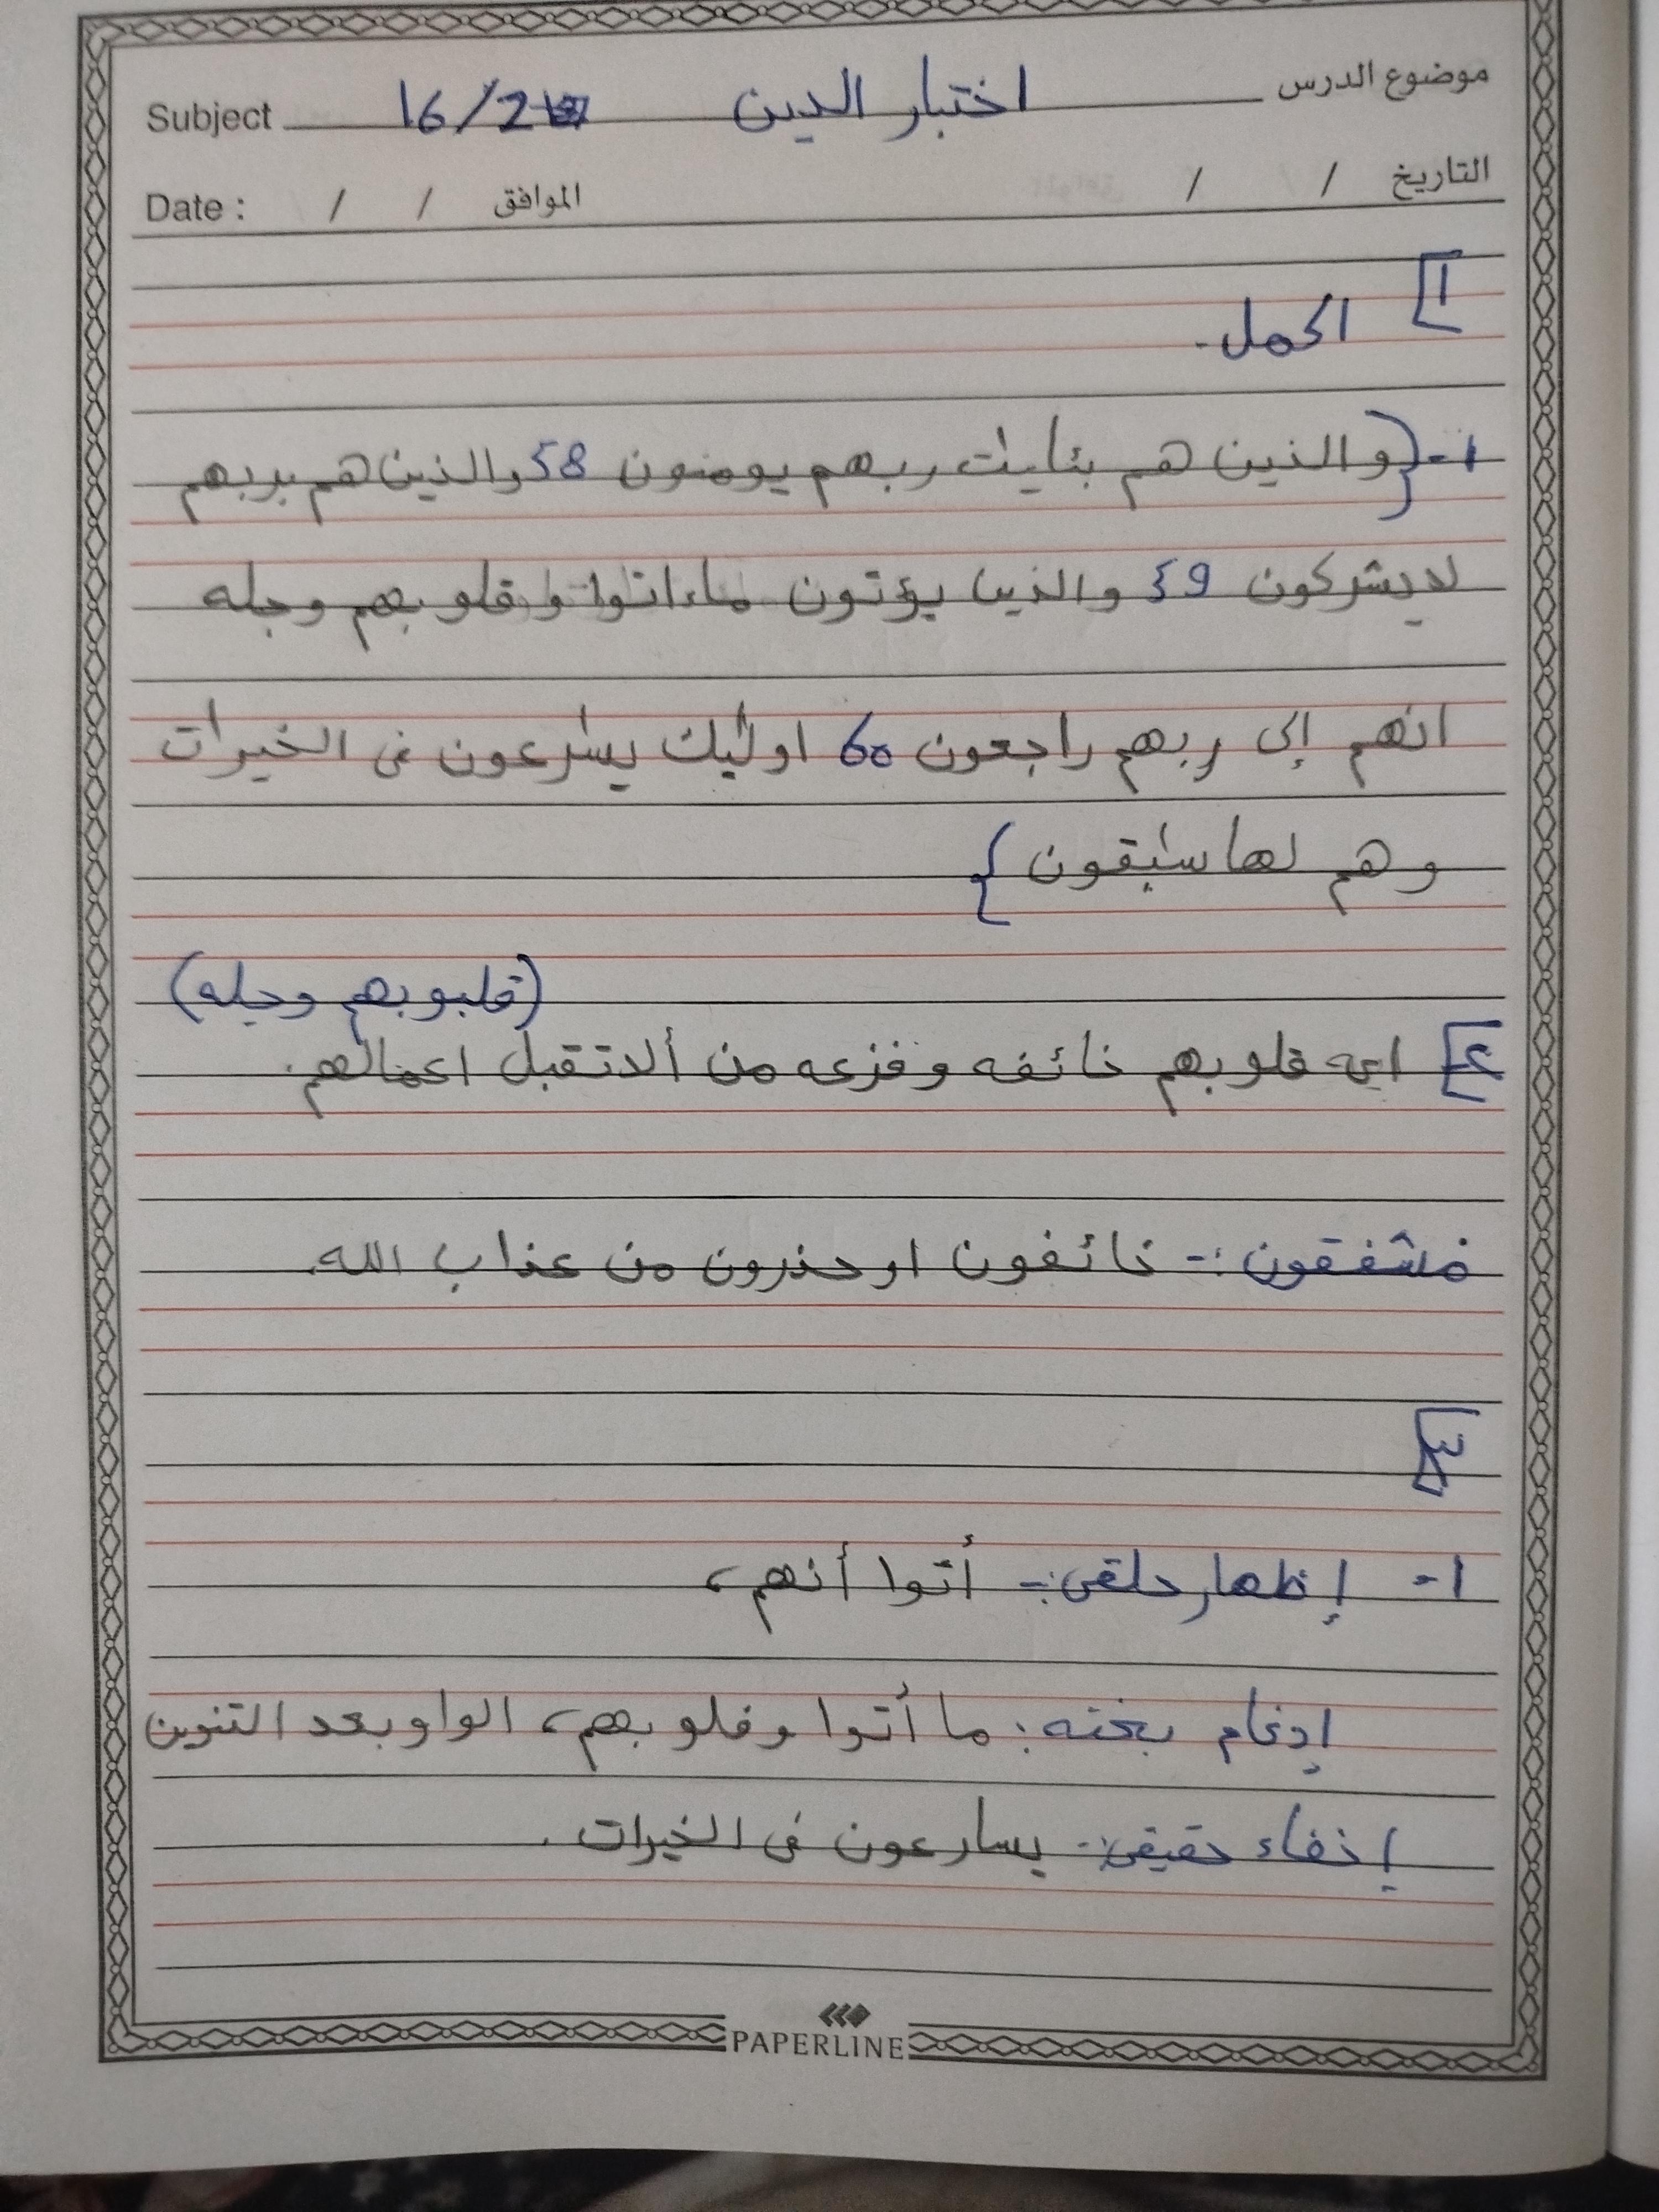 موضوع الدرس اختبار الدين 16/2 Subject
التاريخ / / الموافق / / Date :
1] اكمل.
1- {والذين هم بئايٰت ربهم يومنون 58 والذين هم بربهم
لا يشركون 59 والذين يؤتون ماءاتوا وقلوبهم وجله
انهم إلى ربهم راجعون 60 اولٰئك يسٰرعون فى الخيرٰت
وهم لها سٰبقون}
(قلبوبهم وجله)
2] اي قلوبهم خائفه وفزعه من ألا تتقبل اعمالهم.
مشفقون :- خائفون او حذرون من عذاب الله.
3]
1- إظهار حلقى :- أتوا أنهم،
إدغام بغنه : ما أتوا وقلوبهم، الواو بعد التنوين
إخفاء حقيقى :- يسارعون فى الخيرات.
PAPERLINE